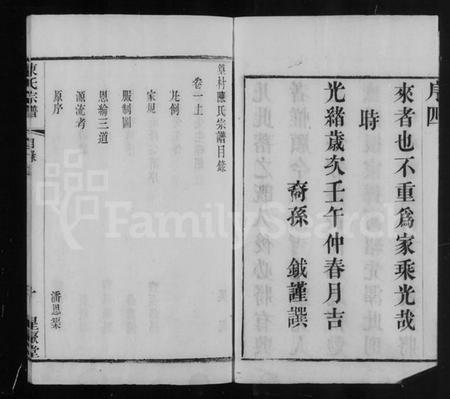 序四
來者也不重爲家乘光哉
時
光緒歲次壬午仲春月吉
裔孫 鉞謹譔
陳氏宗譜
目錄
陳氏宗譜目錄
卷一上
凡例
家規
服制圖
恩綸三道
源流考
原序
潘恩榮
FamilySearch